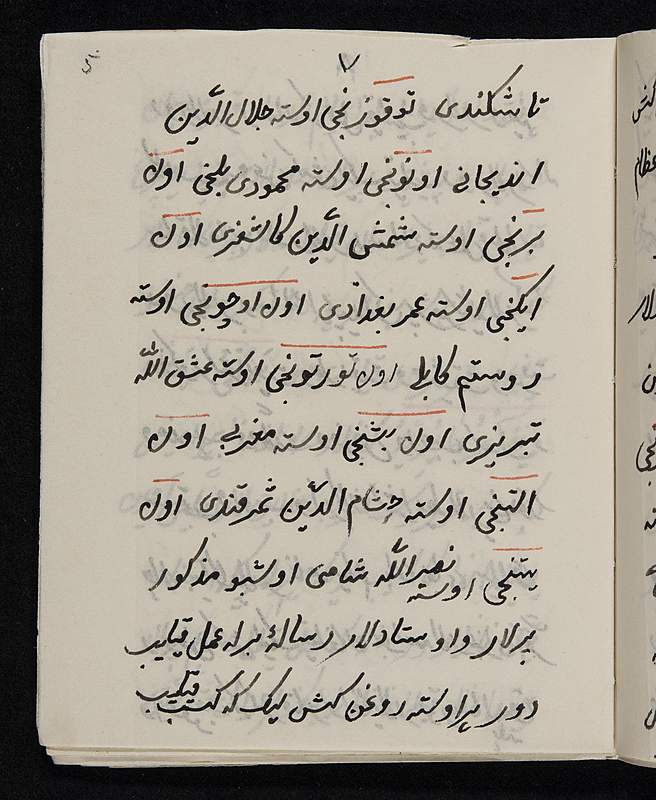 ٧
تاشکندی توقوزنجی اوسته جلال الدین
اندیجانی اونونجی اوسته محمودی بلخی اون
برنجی اوسته شمش الدین کاشغری اون
ایکنجی اوسته عمر بغدادی اون اوچونجی اوسته
روستم کابلی اون تورتونجی اوسته عشق الله
تبریزی اون بشنجی اوسته مغربی اون
التنجی اوسته حشام الدین ثمرقندی اون
یتنجی اوسته نصیرالله شامی اوشبو مذکور
پرلار و اوستادلار رسالهٔ برله عمل قیلیب
دور پر اوسته روغن کش لیک که کسب قیلیب